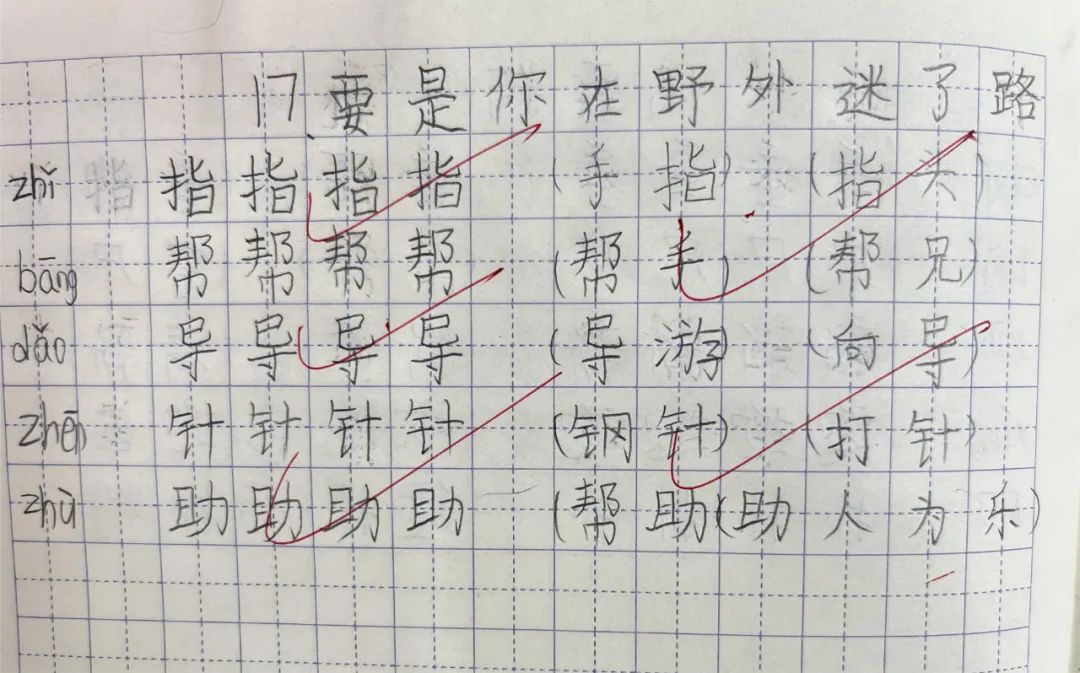 17.要是你在野外迷了路
zhǐ 指 指 指 指 (手指) (指头)
bāng 帮 帮 帮 帮 (帮手) (帮兄)
dǎo 导 导 导 导 (导游) (向导)
zhēn 针 针 针 针 (钢针) (打针)
zhù 助 助 助 助 (帮助) (助人为乐)